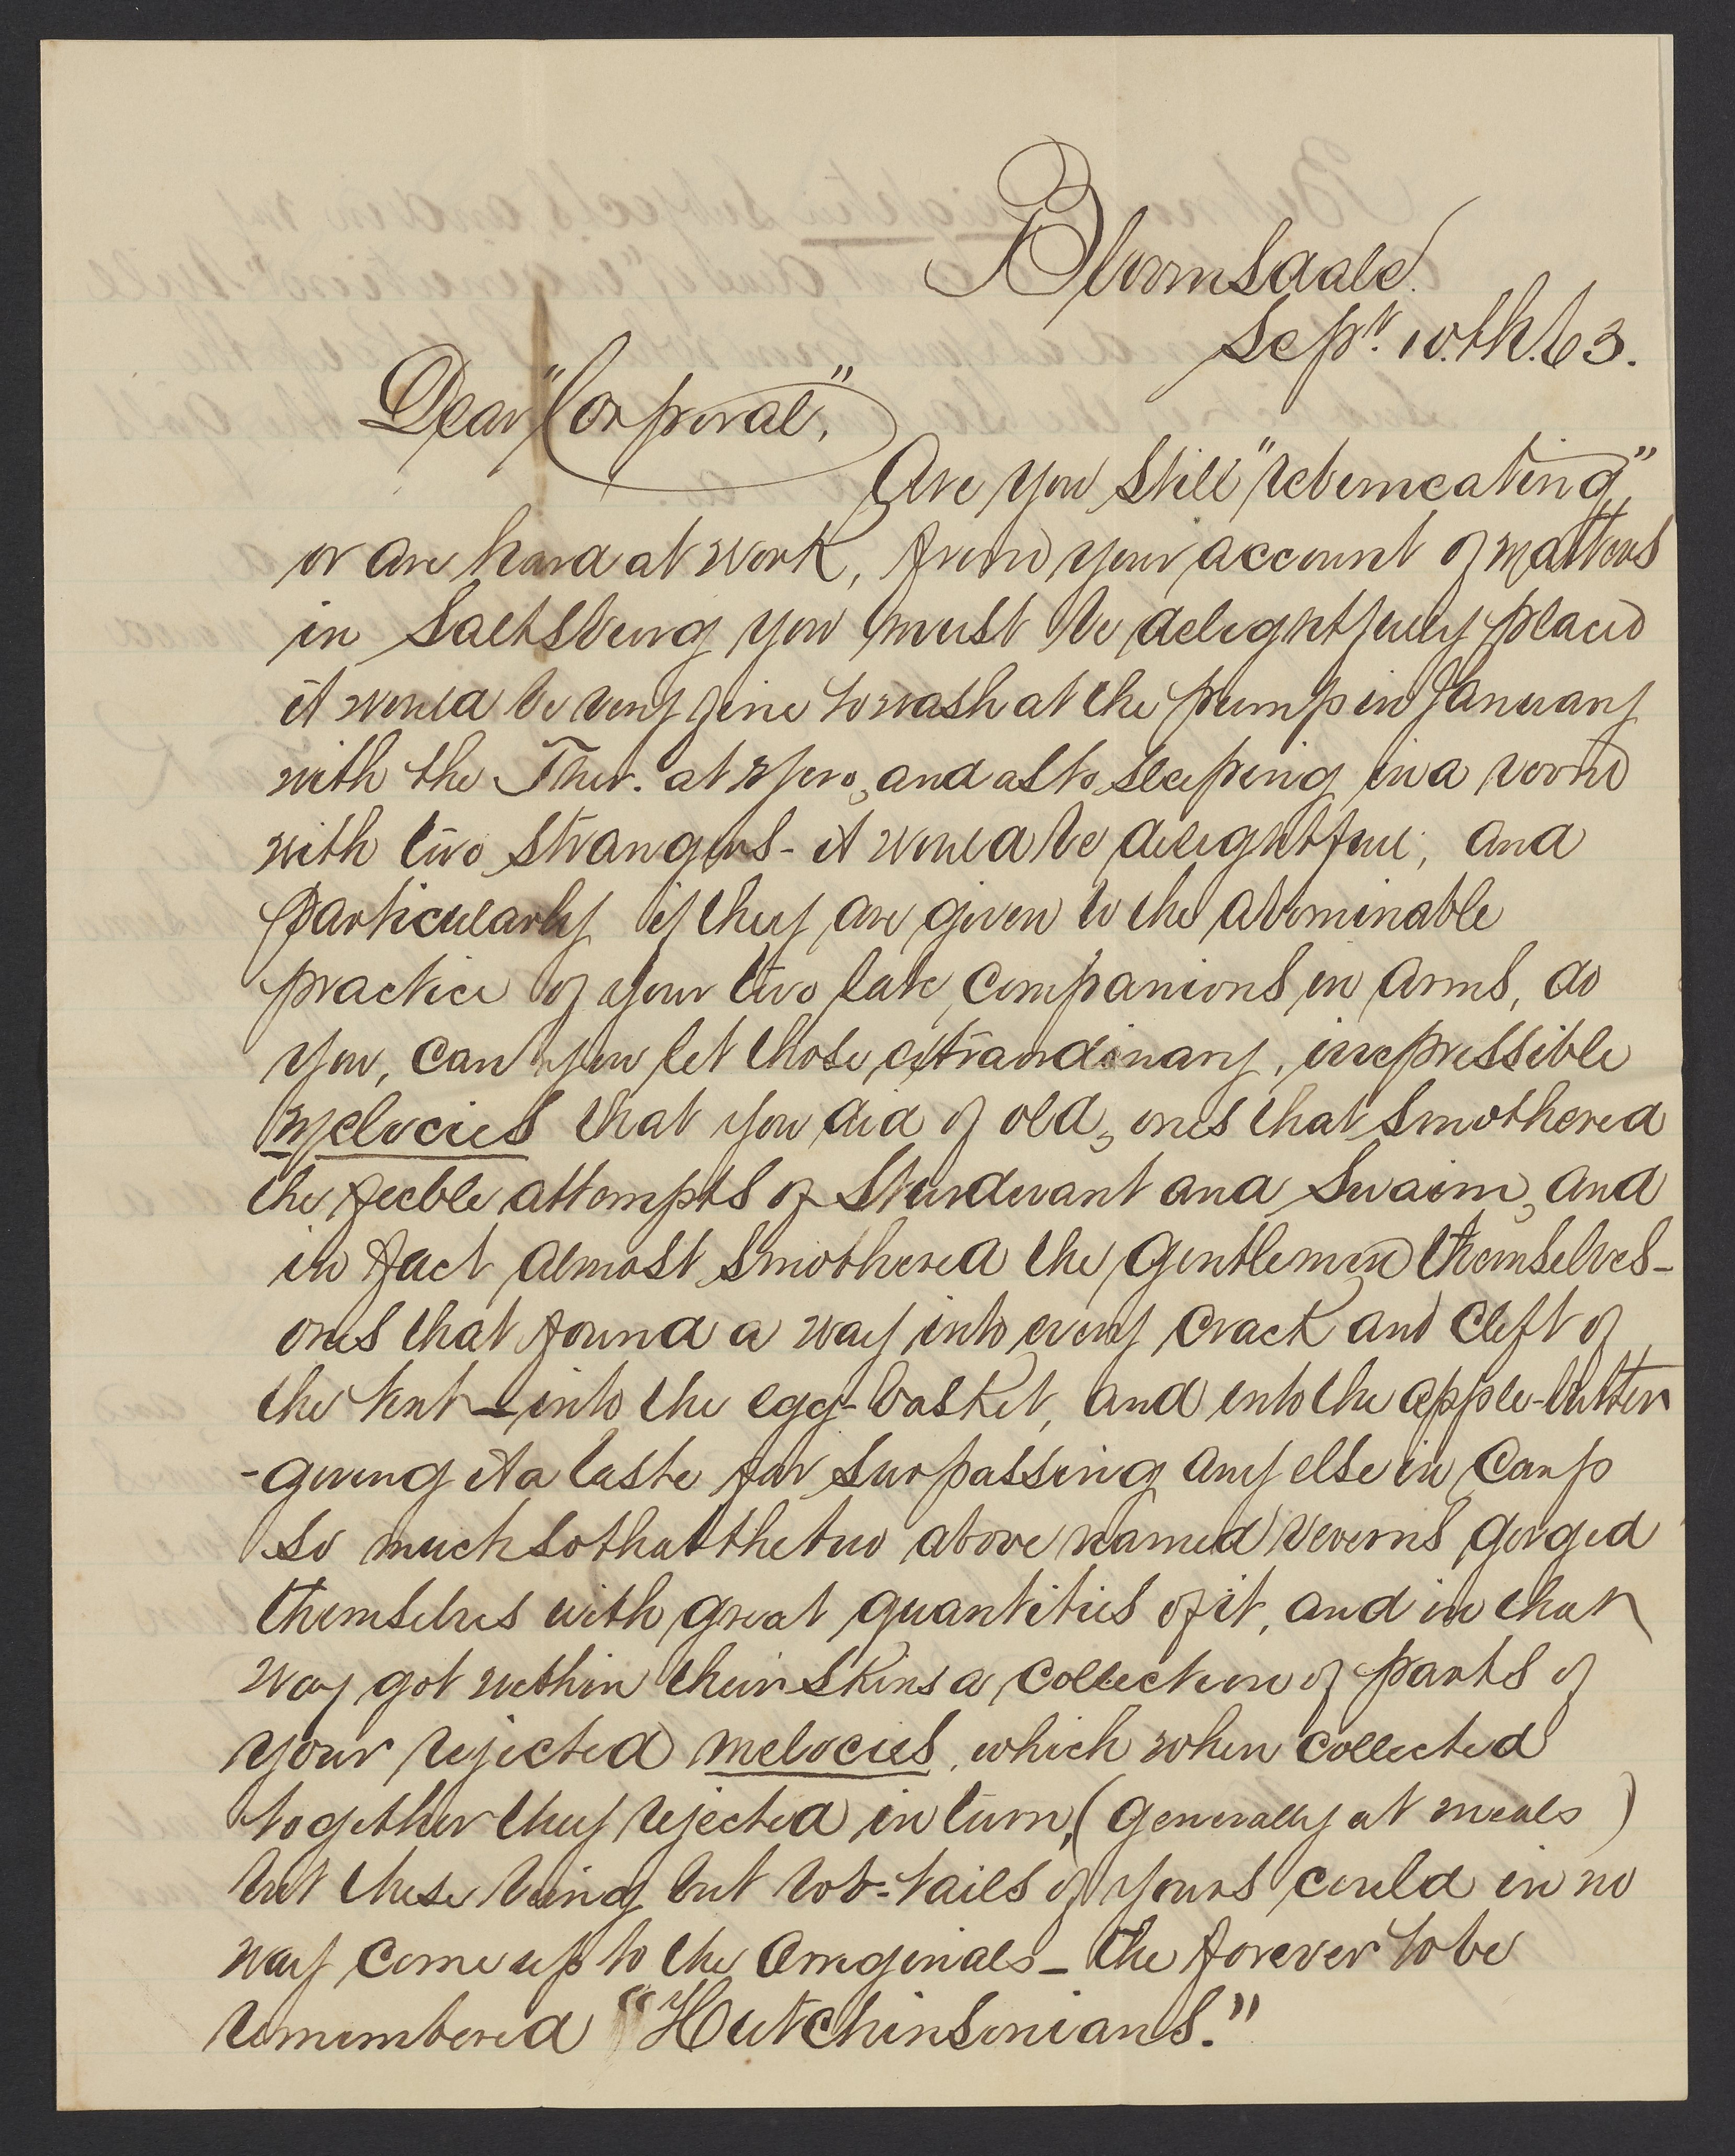 Bloomsdale.
Sept. 10.th. 63.
Dear "Corporal,"
Are you still "
or are hard at work, from your account of matters
in Saltsburg you must be delightfully placed
it would be very fine to wash at the pump in January
with the Ther. at Zero, and as to sleeping in a room
with two strangers - it would be delightful, and
particularly if they are given to the abominable
practice of your two late companions in arms, do
you, can you let those extraordinary, irrepressible
melocies that you did of old, ones that smothered
the feeble attempts of Sturdevant and Swaim, and
in fact almost smothered the gentlemen themselves -
ones that found a way into every crack and cleft of
the tent - into the egg-basket, and into the apple-butter
- giving it a taste far surpassing any else in Camp
so much so that the two above named gorged
themselves with great quantities of it, and in that
way got within their skins a collection of parts of
your rejected melocies, which when collected
together they rejected in turn, (generally at meals)
but these being but bob-tails of yours could in no
way come up to the originals - the forever to be
remembered "Hutchinsonians."